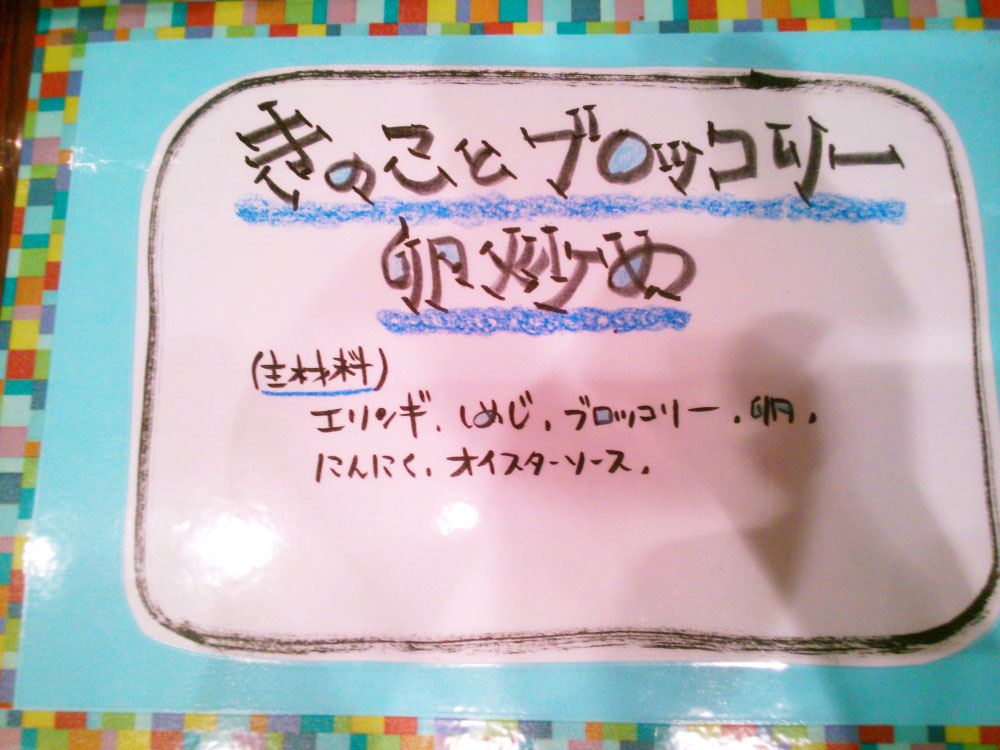 きのことブロッコリー
卵炒め
(主材料)
エリンギ、しめじ、ブロッコリー、卵、
にんにく、オイスターソース、